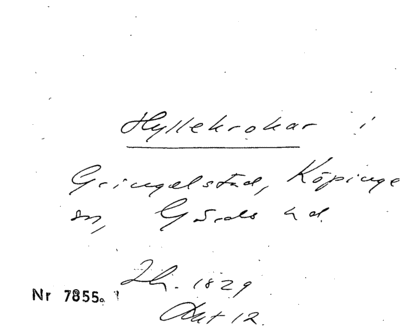 Hyllekrokar i
Gringelstad, Köpinge
sn, Gärds hd.
Ih. 1829
Nr 7855.
Akt 12.